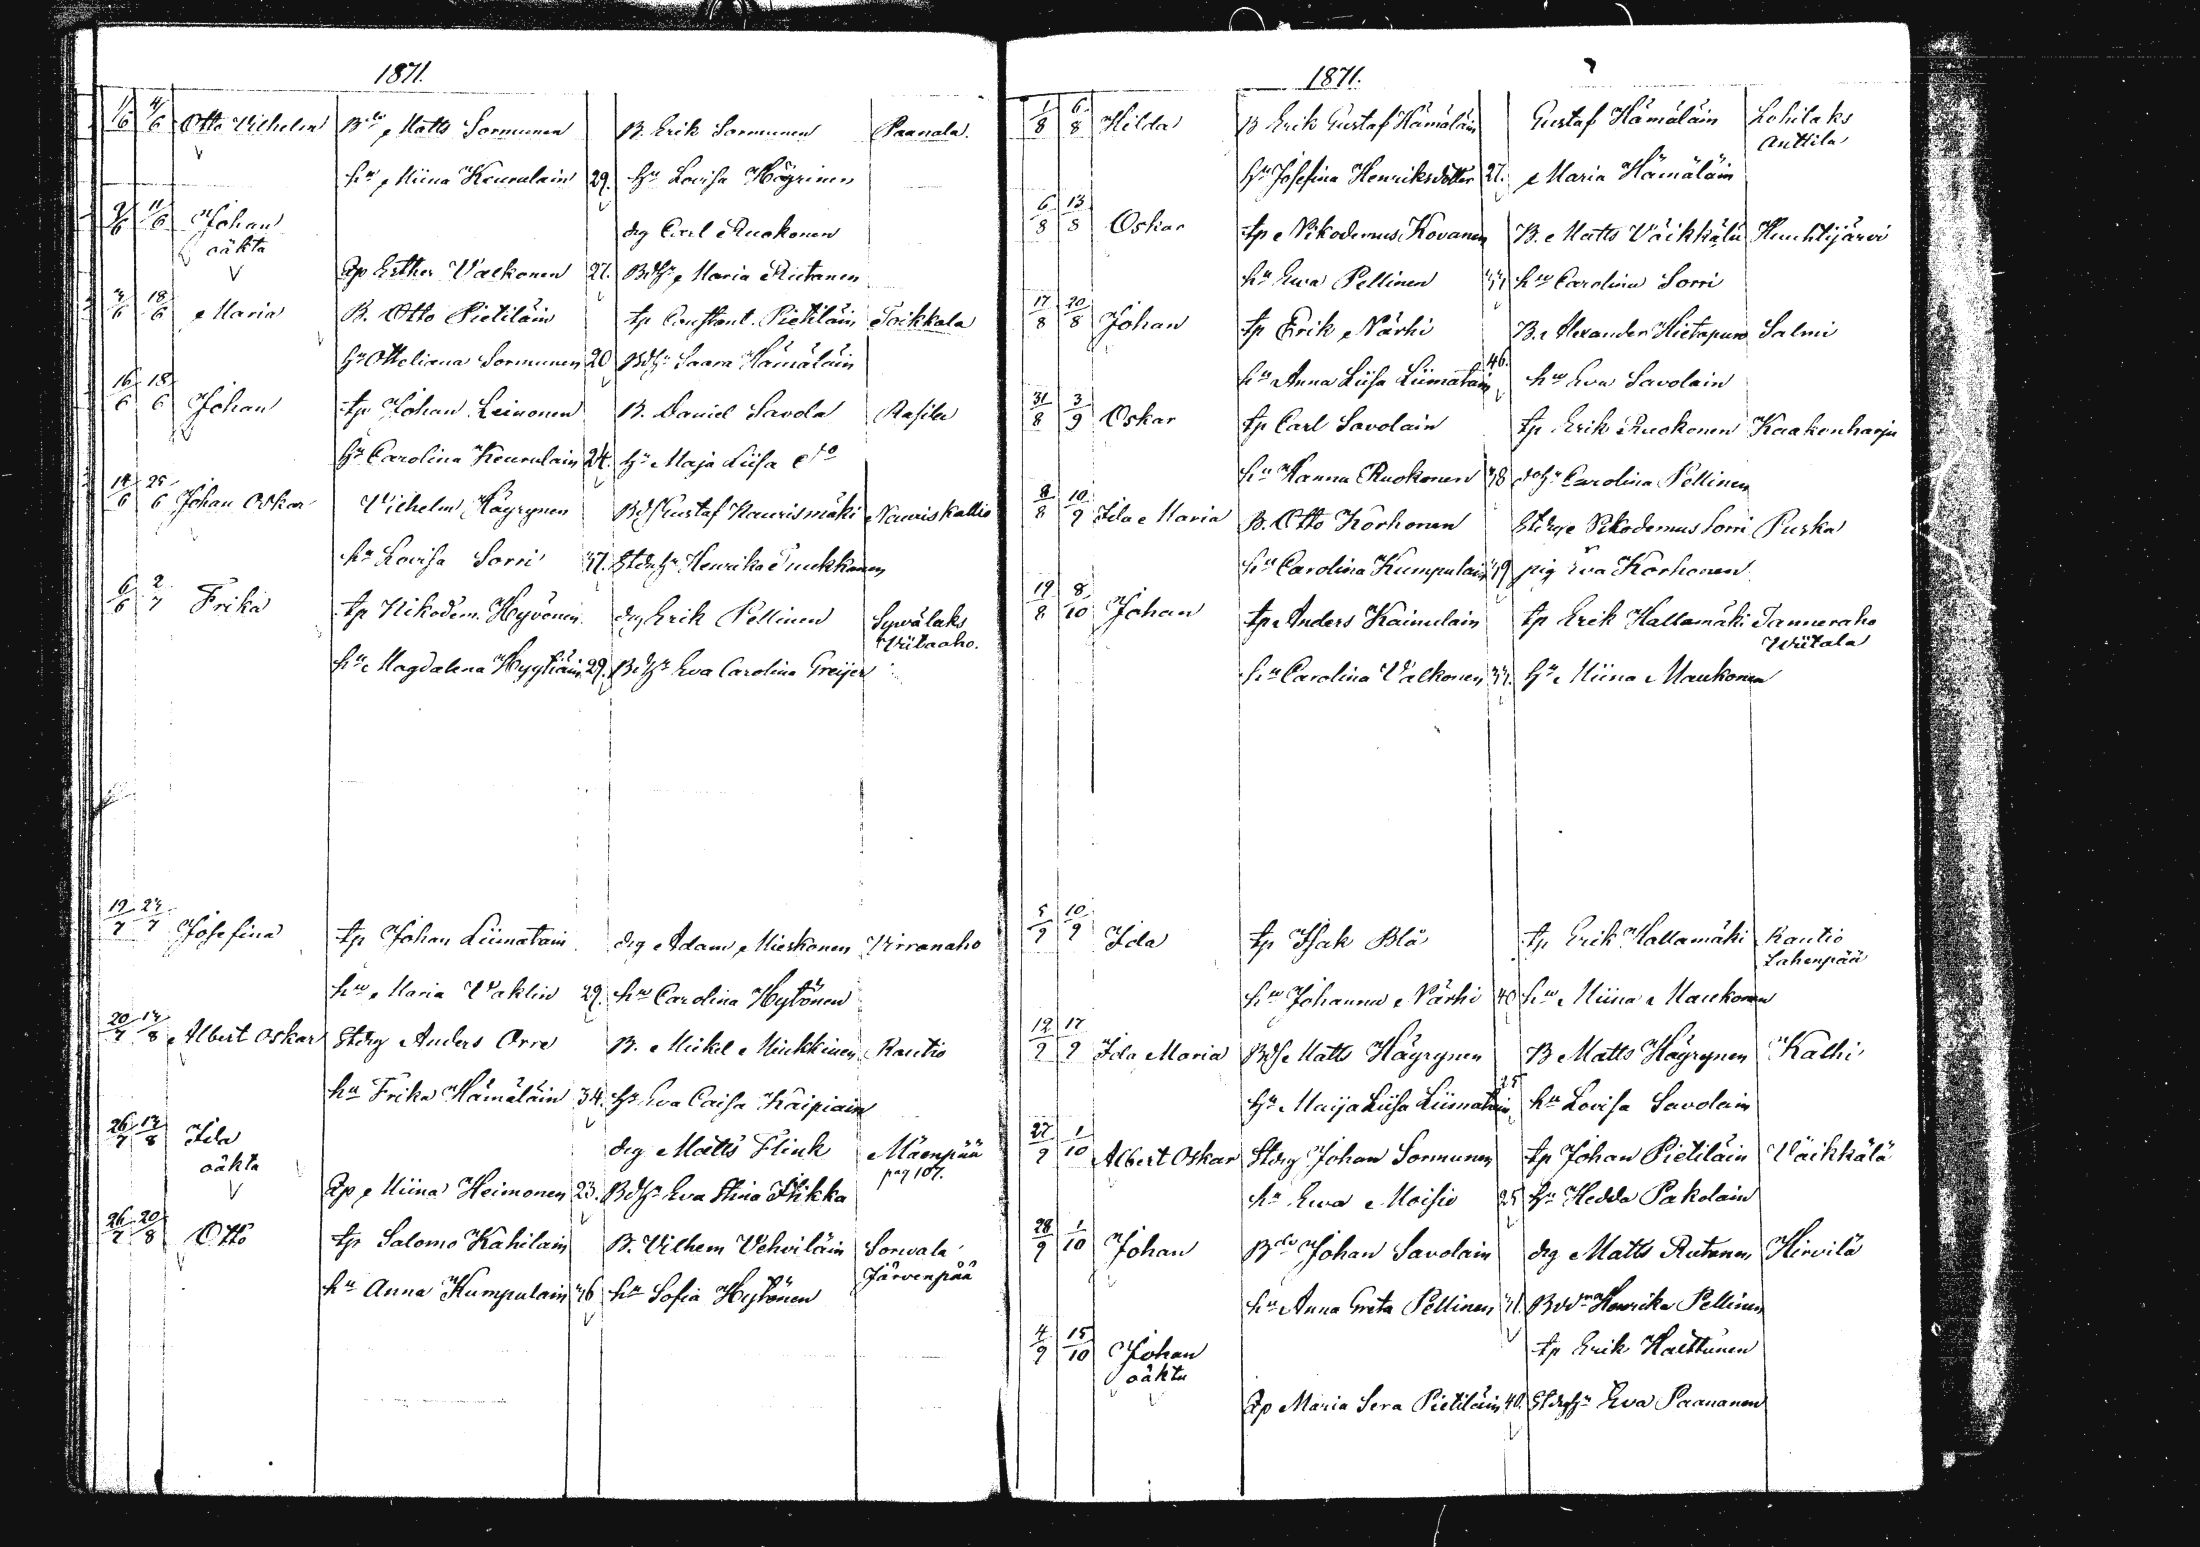 1871.
1/6 4/6 Otto Vilhelm Bdo Matts Sormunen B. Erik Sormunen Paanala.
hu Miina Keurulain 29. Hu Lovisa Häyrinen
9/6 11/6 Johan drg Carl Ruokonen
oäkta
Qp Esther Valkonen 27. BdHu Maria Riitanen
3/6 18/6 Maria B. Otto Pietiläin tp Constant. Pietiläin Toikkala
Hu Otteliana Sormunen 20 BdHu Saara Hämäläin
16/6 18/6 Johan tp Johan Leinonen B. Daniel Savola Rasila
Hu Carolina Keurulain 24. Hu Maja Liisa do
14/6 25/6 Johan Oskar Vilhelm Häyrynen Bds Gustaf Naurismäki Nauriskallio
hu Lovisa Sorri 37. StdrHu Henrika Tuukkanen
6/6 2/7 Frika tp Nikodem. Hyvönen drg Erik Pellinen Syvälaks
Viitaaho.
hu Magdalena Hyytiäin 29. BdHu Eva Carolina Greijer
19/7 23/7 Josefina tp Johan Liimatain drg Adam Mieskonen Virranaho
hu Maria Vaklin 29. hu Carolina Hytönen
20/7 13/8 Albert Oskar Stdrg Anders Orre B. Mikel Minkkinen Rautio
hu Frika Hämäläin 34. Hu Eva Caisa Käipiain
26/7 13/8 Ida drg Matts Flink Mäenpää
oäkta pag 107.
Qp Miina Heimonen 23. BdHu Eva Stina Flikka
26/7 20/8 Otto tp Salomo Kähiläin B. Vilhem Vehviläin Sorvala
Järvenpää
hu Anna Kumpulain 36 hu Sofia Hytönen
1871.
1/8 6/8 Hilda B Erik Gustaf Hämäläin Gustaf Hämäläin Lohilaks
Anttila
Hu Josefina Henriksdotter 27. Maria Hämäläin
6/8 13/8 Oskar tp Nikodemus Kovanen B. Matts Väikkälä Huuhtijärvi
hu Eva Pellinen hu Carolina Sorri
17/8 20/8 Johan tp Erik Närhi B. Alexander Hietapuro Salmi
hu Anna Liisa Liimatain 46. hu Eva Savolain
31/8 3/9 Oskar tp Carl Savolain tp Erik Ruokonen Kaakonharju
hu Hanna Ruokonen 38 Carolina Pellinen
8/8 10/9 Ida Maria B. Otto Korhonen Stdrg Nikodemus Sorri Purka
hu Carolina Kumpulain 39 pig Eva Korhonen
19/8 8/10 Johan tp Anders Kainulain tp Erik Hallamäki Tanneraho
Wiitala
hu Carolina Valkonen 37. Hu Miina Maukonen
5/9 10/9 Ida tp Isak Blå tp Erik Hallamäki Rautio
Lahenpää
hu Johanna Närhi 40 hu Miina Maukonen
12/9 17/9 Ida Maria Bds Matts Häyrynen B Matts Häyrynen Kälhi
Hu Maija Liisa Liimatain 25 hu Lovisa Savolain
27/9 1/10 Albert Oskar Stdrg Johan Sormunen tp Johan Pietiläin Väikkälä
hu Eva Moisio 25 Hu Hedda Pakolain
28/9 1/10 Johan Bdo Johan Savolain drg Matts Rutanen Hirvilä
hu Anna Greta Pellinen 31. Henrika Pellinen
4/9 15/10 Johan tp Erik Halttunen
oäkta
Qp Maria Sera Pietiläin 40. StdrgHu Eva Paananen